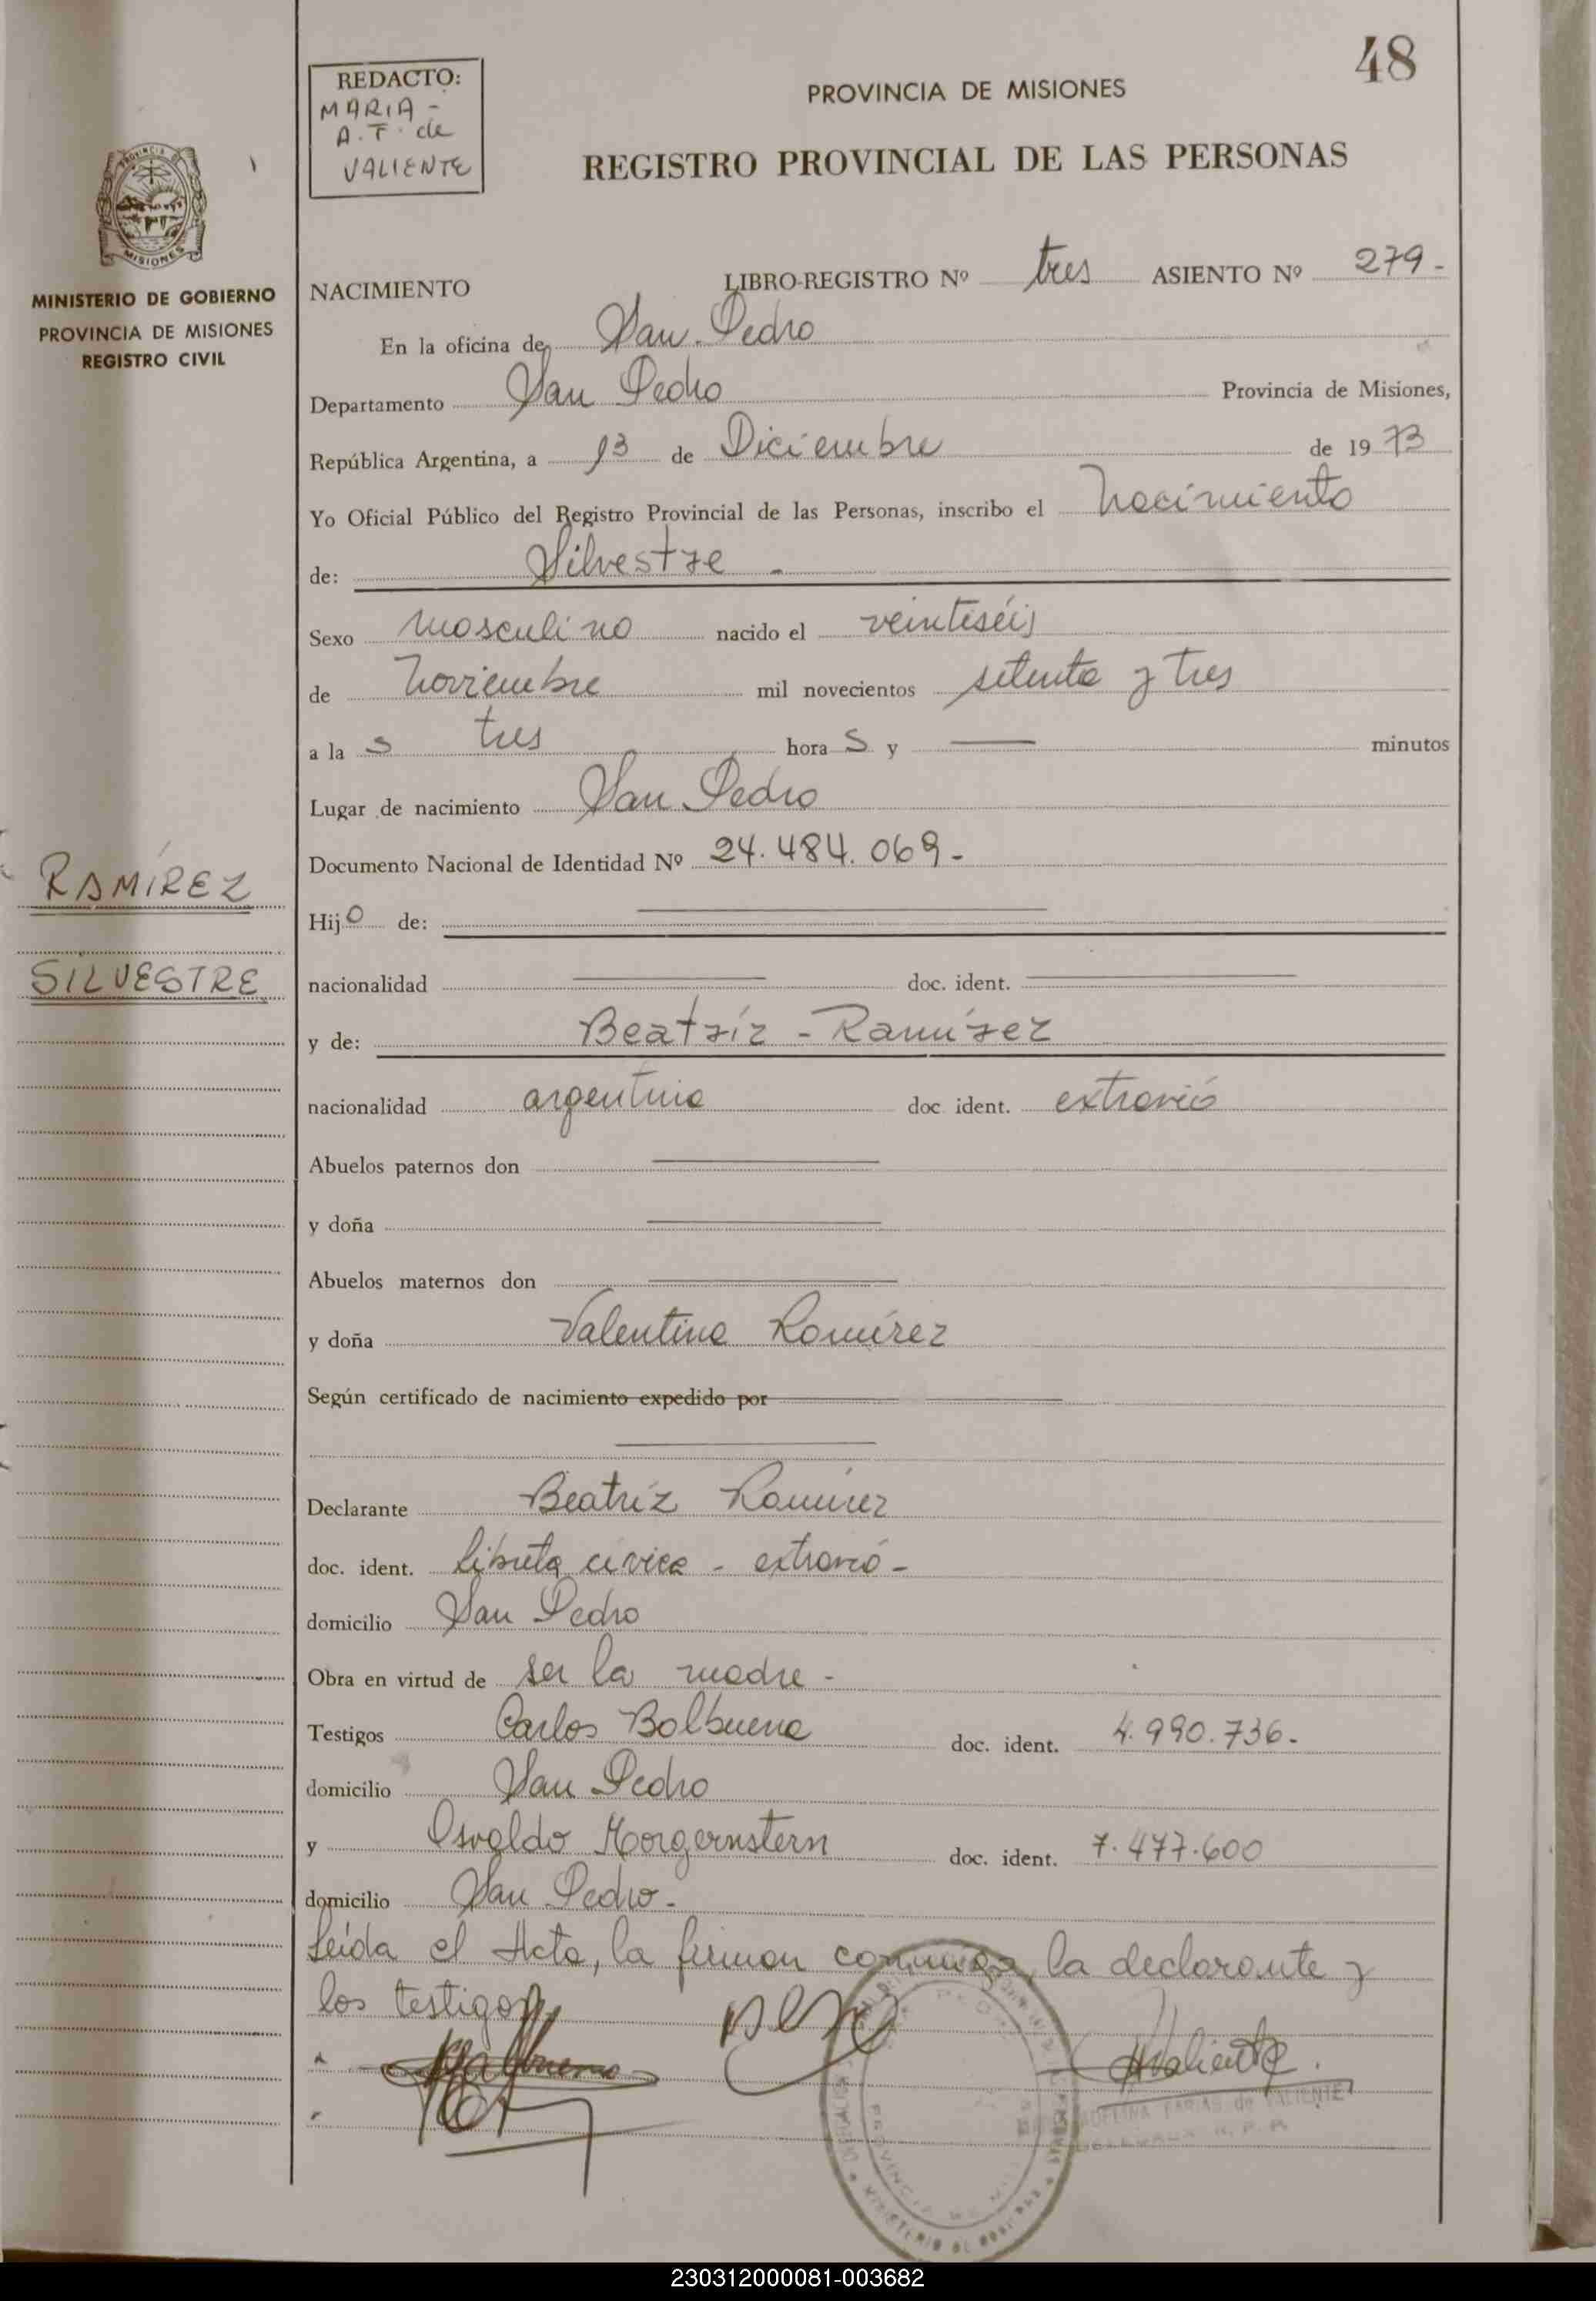 48
REDACTO:
MARIA -
A. F. de
VALIENTE
PROVINCIA DE MISIONES
REGISTRO PROVINCIAL DE LAS PERSONAS
MISIONES
MINISTERIO DE GOBIERNO
PROVINCIA DE MISIONES
REGISTRO CIVIL
NACIMIENTO LIBRO-REGISTRO Nº tres ASIENTO Nº 279-
En la oficina de San Pedro
Departamento San Pedro Provincia de Misiones,
República Argentina, a 13 de Diciembre de 1973
Yo Oficial Público del Registro Provincial de las Personas, inscribo el nacimiento
de: Silvestre -
Sexo masculino nacido el veintiséis
de noviembre mil novecientos setenta y tres
a la s tres hora s y — minutos
Lugar de nacimiento San Pedro
Documento Nacional de Identidad Nº 24.484.069-
RAMÍREZ
SILVESTRE
Hijo de:
nacionalidad doc. ident.
y de: Beatríz - Ramírez
nacionalidad argentina doc. ident. extravió
Abuelos paternos don
y doña
Abuelos maternos don
y doña Valentina Ramírez
Según certificado de nacimiento expedido por
Declarante Beatríz Ramírez
doc. ident. libreta cívica - extravió -
domicilio San Pedro
Obra en virtud de ser la madre -
Testigos Carlos Balbuena doc. ident. 4.990.736.
domicilio San Pedro
y Osvaldo Morgernstern doc. ident. 7.477.600
domicilio San Pedro-
Leída el Acta, la firman conmigo, la declarante y
los testigos
230312000081-003682